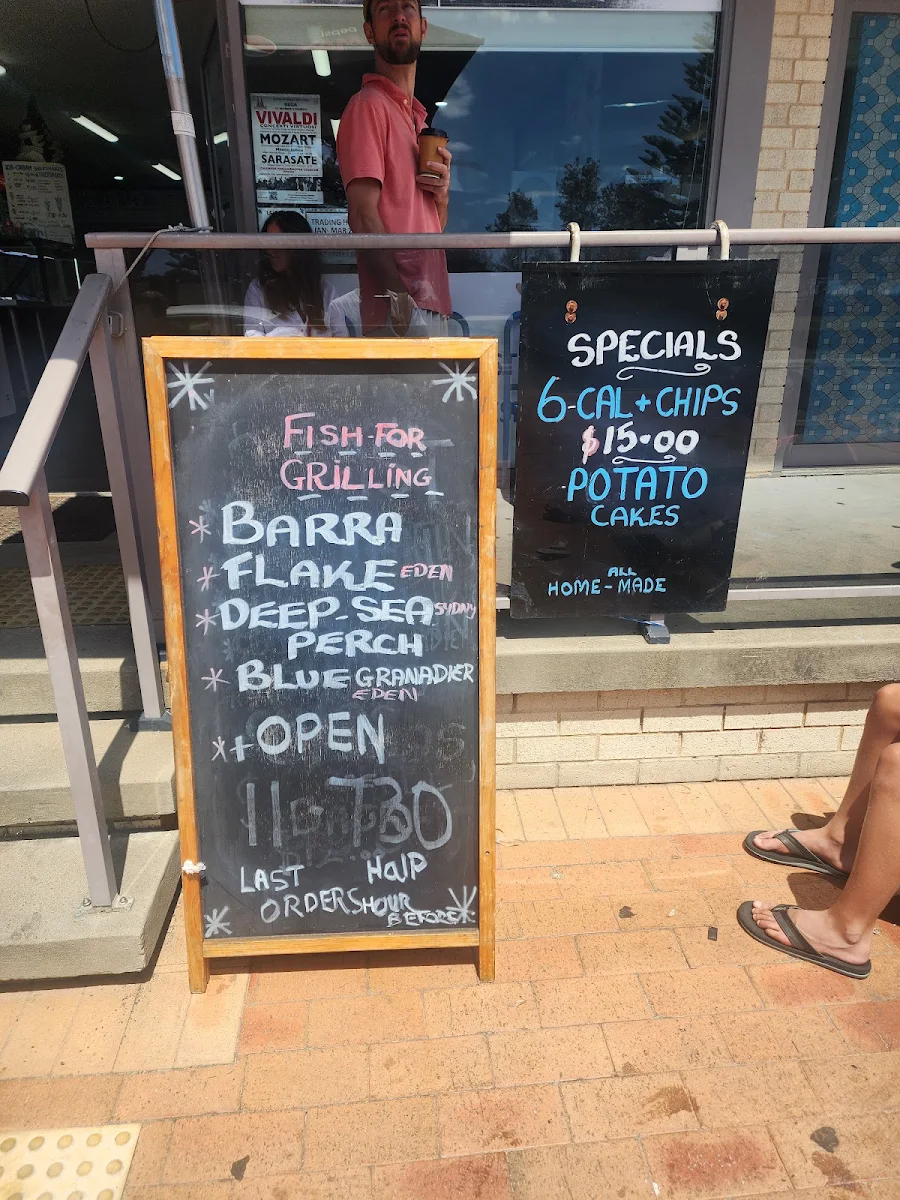 VIVALDI
MOZART
SARASATE
TRADING
JAN-MAR
FISH-FOR
GRILLING
* BARRA
* FLAKE EDEN
* DEEP-SEA SYDNY
PERCH
* BLUE GRANADIER
EDEN
* + OPEN
11 - 730
LAST HALP
ORDERS HOUR
BEFORE
SPECIALS
6-CAL + CHIPS
$15.00
POTATO
CAKES
ALL
HOME-MADE